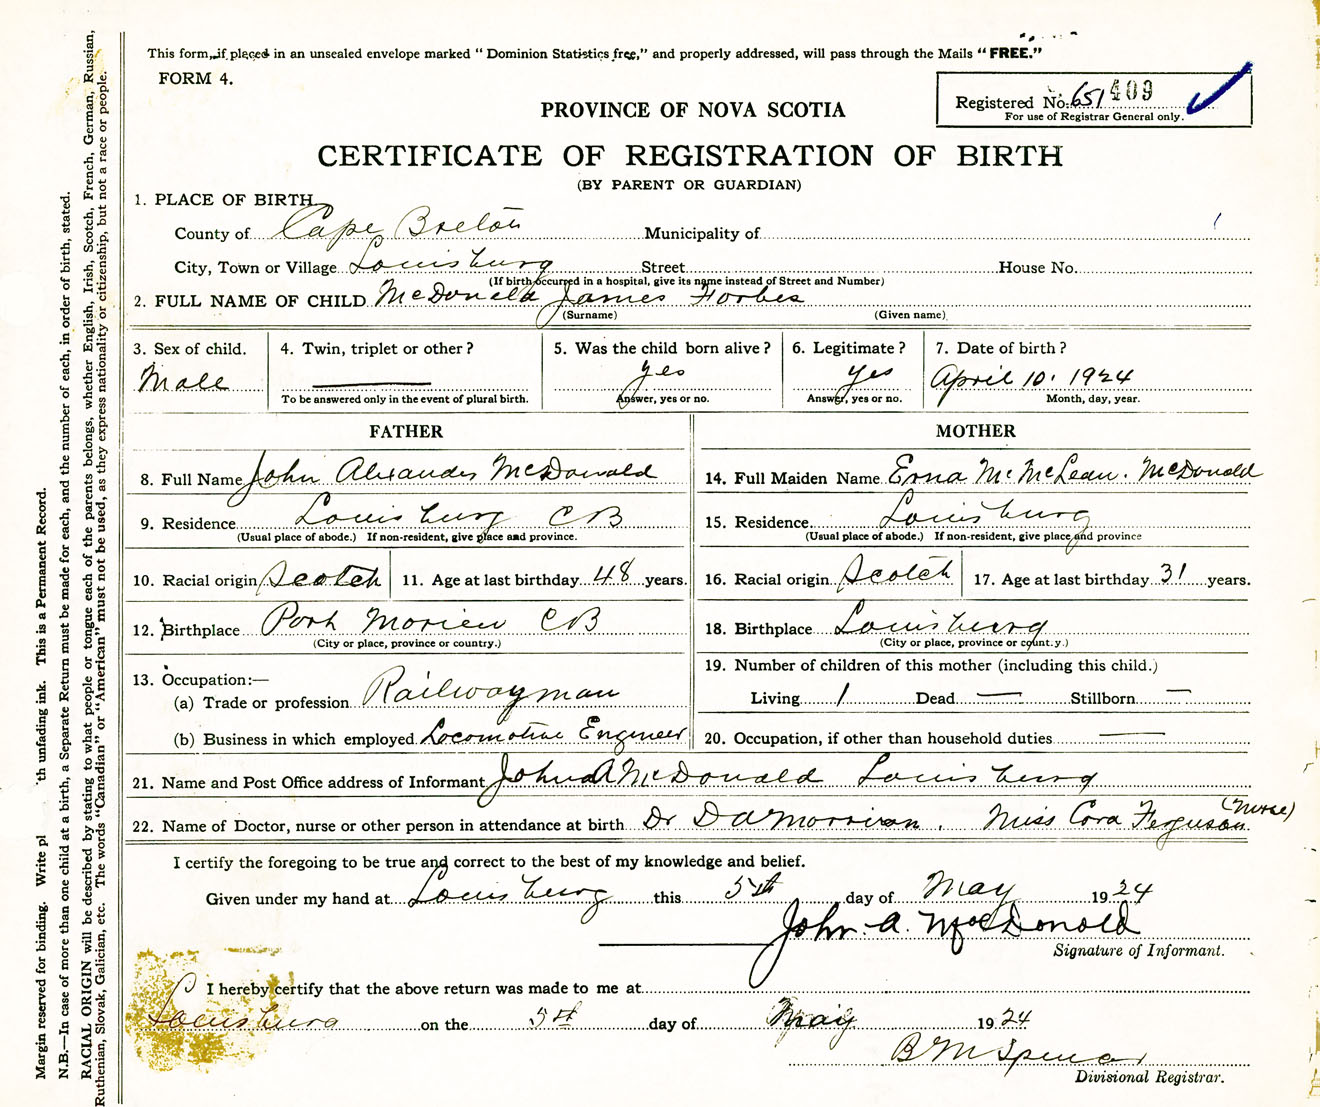 This form, if placed in an unsealed envelope marked "Dominion Statistics free," and properly addressed, will pass through the Mails "FREE."
FORM 4.
Registered No. 651409
For use of Registrar General only.
PROVINCE OF NOVA SCOTIA
CERTIFICATE OF REGISTRATION OF BIRTH
(BY PARENT OR GUARDIAN)
1. PLACE OF BIRTH
County of Cape Breton Municipality of
City, Town or Village Louisburg Street House No.
(If birth occurred in a hospital, give its name instead of Street and Number)
2. FULL NAME OF CHILD McDonald James Forbes
(Surname) (Given name)
3. Sex of child. 4. Twin, triplet or other? 5. Was the child born alive? 6. Legitimate? 7. Date of birth?
Male yes yes April 10. 1924
To be answered only in the event of plural birth. Answer, yes or no. Answer, yes or no. Month, day, year.
FATHER
8. Full Name John Alexander McDonald
9. Residence Louisburg CB
(Usual place of abode.) If non-resident, give place and province.
10. Racial origin Scotch 11. Age at last birthday 48 years.
12. Birthplace Port Morien CB
(City or place, province or country.)
13. Occupation:—
(a) Trade or profession Railwayman
(b) Business in which employed Locomotive Engineer
MOTHER
14. Full Maiden Name Erna Mc McLean. McDonald
15. Residence Louisburg
(Usual place of abode.) If non-resident, give place and province
16. Racial origin Scotch 17. Age at last birthday 31 years.
18. Birthplace Louisburg
(City or place, province or count.y.)
19. Number of children of this mother (including this child.)
Living 1 Dead — Stillborn —
20. Occupation, if other than household duties —
21. Name and Post Office address of Informant John A McDonald Louisburg
22. Name of Doctor, nurse or other person in attendance at birth Dr D A Morrison. Miss Cora Ferguson (Nurse)
I certify the foregoing to be true and correct to the best of my knowledge and belief.
Given under my hand at Louisburg this 5th day of May 1924
John. A. MacDonald
Signature of Informant.
I hereby certify that the above return was made to me at
Louisburg on the 5th day of May 1924
B M Spencer
Divisional Registrar.
Margin reserved for binding. Write pl 'th unfading ink. This is a Permanent Record.
N.B.—In case of more than one child at a birth, a Separate Return must be made for each, and the number of each, in order of birth, stated.
RACIAL ORIGIN will be described by stating to what people or tongue each of the parents belongs, whether English, Irish, Scotch, French, German, Russian,
Ruthenian, Slovak, Galician, etc. The words "Canadian" or "American" must not be used, as they express nationality or citizenship, but not a race or people.